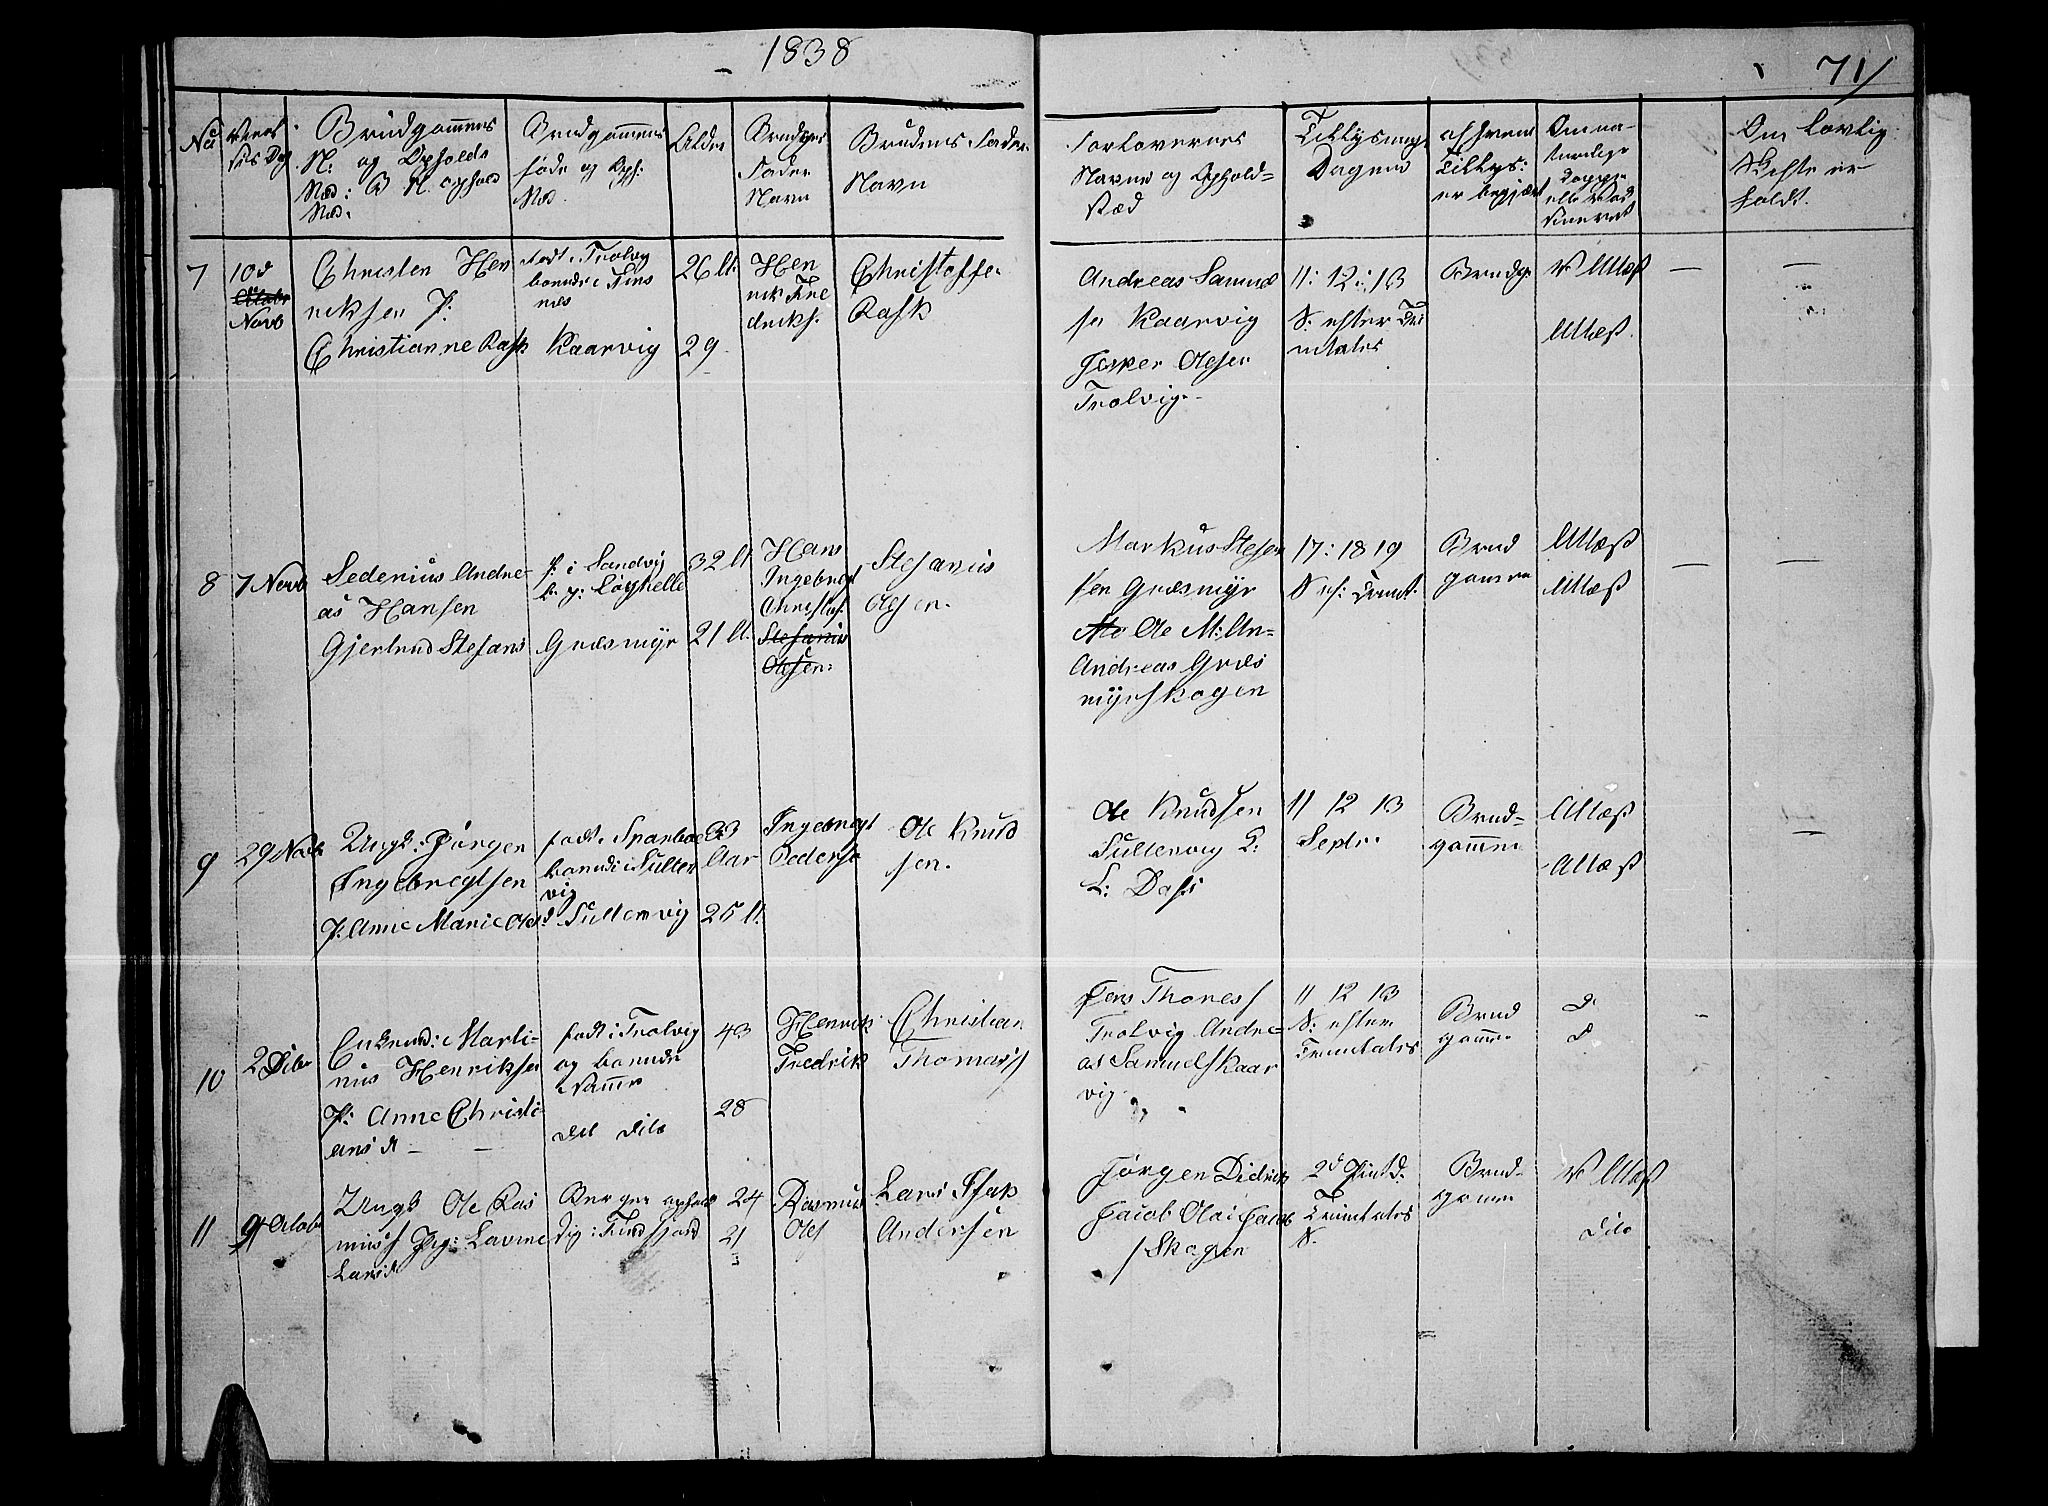 1838
71/
No Vielsses Dag.
Brudgommens
N: og Opholds
Sted: B N. ophold
Sted.
Brudgommens
føde og Oph:
Sted.
Alder
Brudgs
Fader
Navn
Brudens Fader
Navn
Forlovernes
Navne og Ophold=
stæd
Tillysnings
Dagene
af hvem
Tillys:
er begjært
Om lovlig
Skifte er
holdt.
7
10d
Octobr
Novb
Christen Hen
riksen P:
Christianne Rask
født i Trolvig
boende i Fins
næs
Kaarvig
26 A:
29
Hen
rik Fre
driks.
Christoffer
Rask
Andreas Samuel
sen Kaarvig
Jesker Olsen
Trolvig.
11: 12: 13
S: efter Tri
nitatis
Brudg.
V Attest
Attest.
8
7 Novb
Sedenius Andre-
as Hansen
Gjertrud Stefans
f: i Sandvig
b. p: Løghelle
Græsmyr
32 A
21 A.
Hans
Ingebregt
Christof:
Stefanius
Olsen.
Stefanius
Olsen.
Markus Stefen
sen Græsmyr
Ole M: An=
Andreas Græs
myrskogen
17: 18 19
S ef: Trinit:
Brud
gommen
Attest
Attest
9
29 Novb
Ungk: Jørgen
Ingebregtsen
P: Anne Marie Olsd
født i Sparboe
boende i Sulter
vig
Sultervig
33
Aar
25 A.
Ingebregt
Pederse
Ole Knud
sen.
Ole Knudsen
Sultervig P:
L: Dass
11 12 13
Septr.
Brud-
gommen
Attest
Attest
10
2 Debr
Enkemd: Marti-
nus Henriksen
P: Anne Christi
ansd
født i Trolvig
og boende
samme
det dito
43
28
Henrik
Fredrik
Christian
Thomass
Jens Thoness
Trolvig Andre=
as Samuels Kaar
vig
11 12 13
S: efter
Trinitatis
Brud
gomme
d
d
11
9 Octob
Ungk Ole Ras
muss Pg: Lavine
Larsd
Berger ophold
dig: Findfjord
24
21
Rasmus
Ols
Lars Isak
Andersen
Jørgen Didrik
Jacob Olai Jacob
s Skogen
2d Pint d.
Trinitatis
S.
Brud-
gomme
V Attest
dito